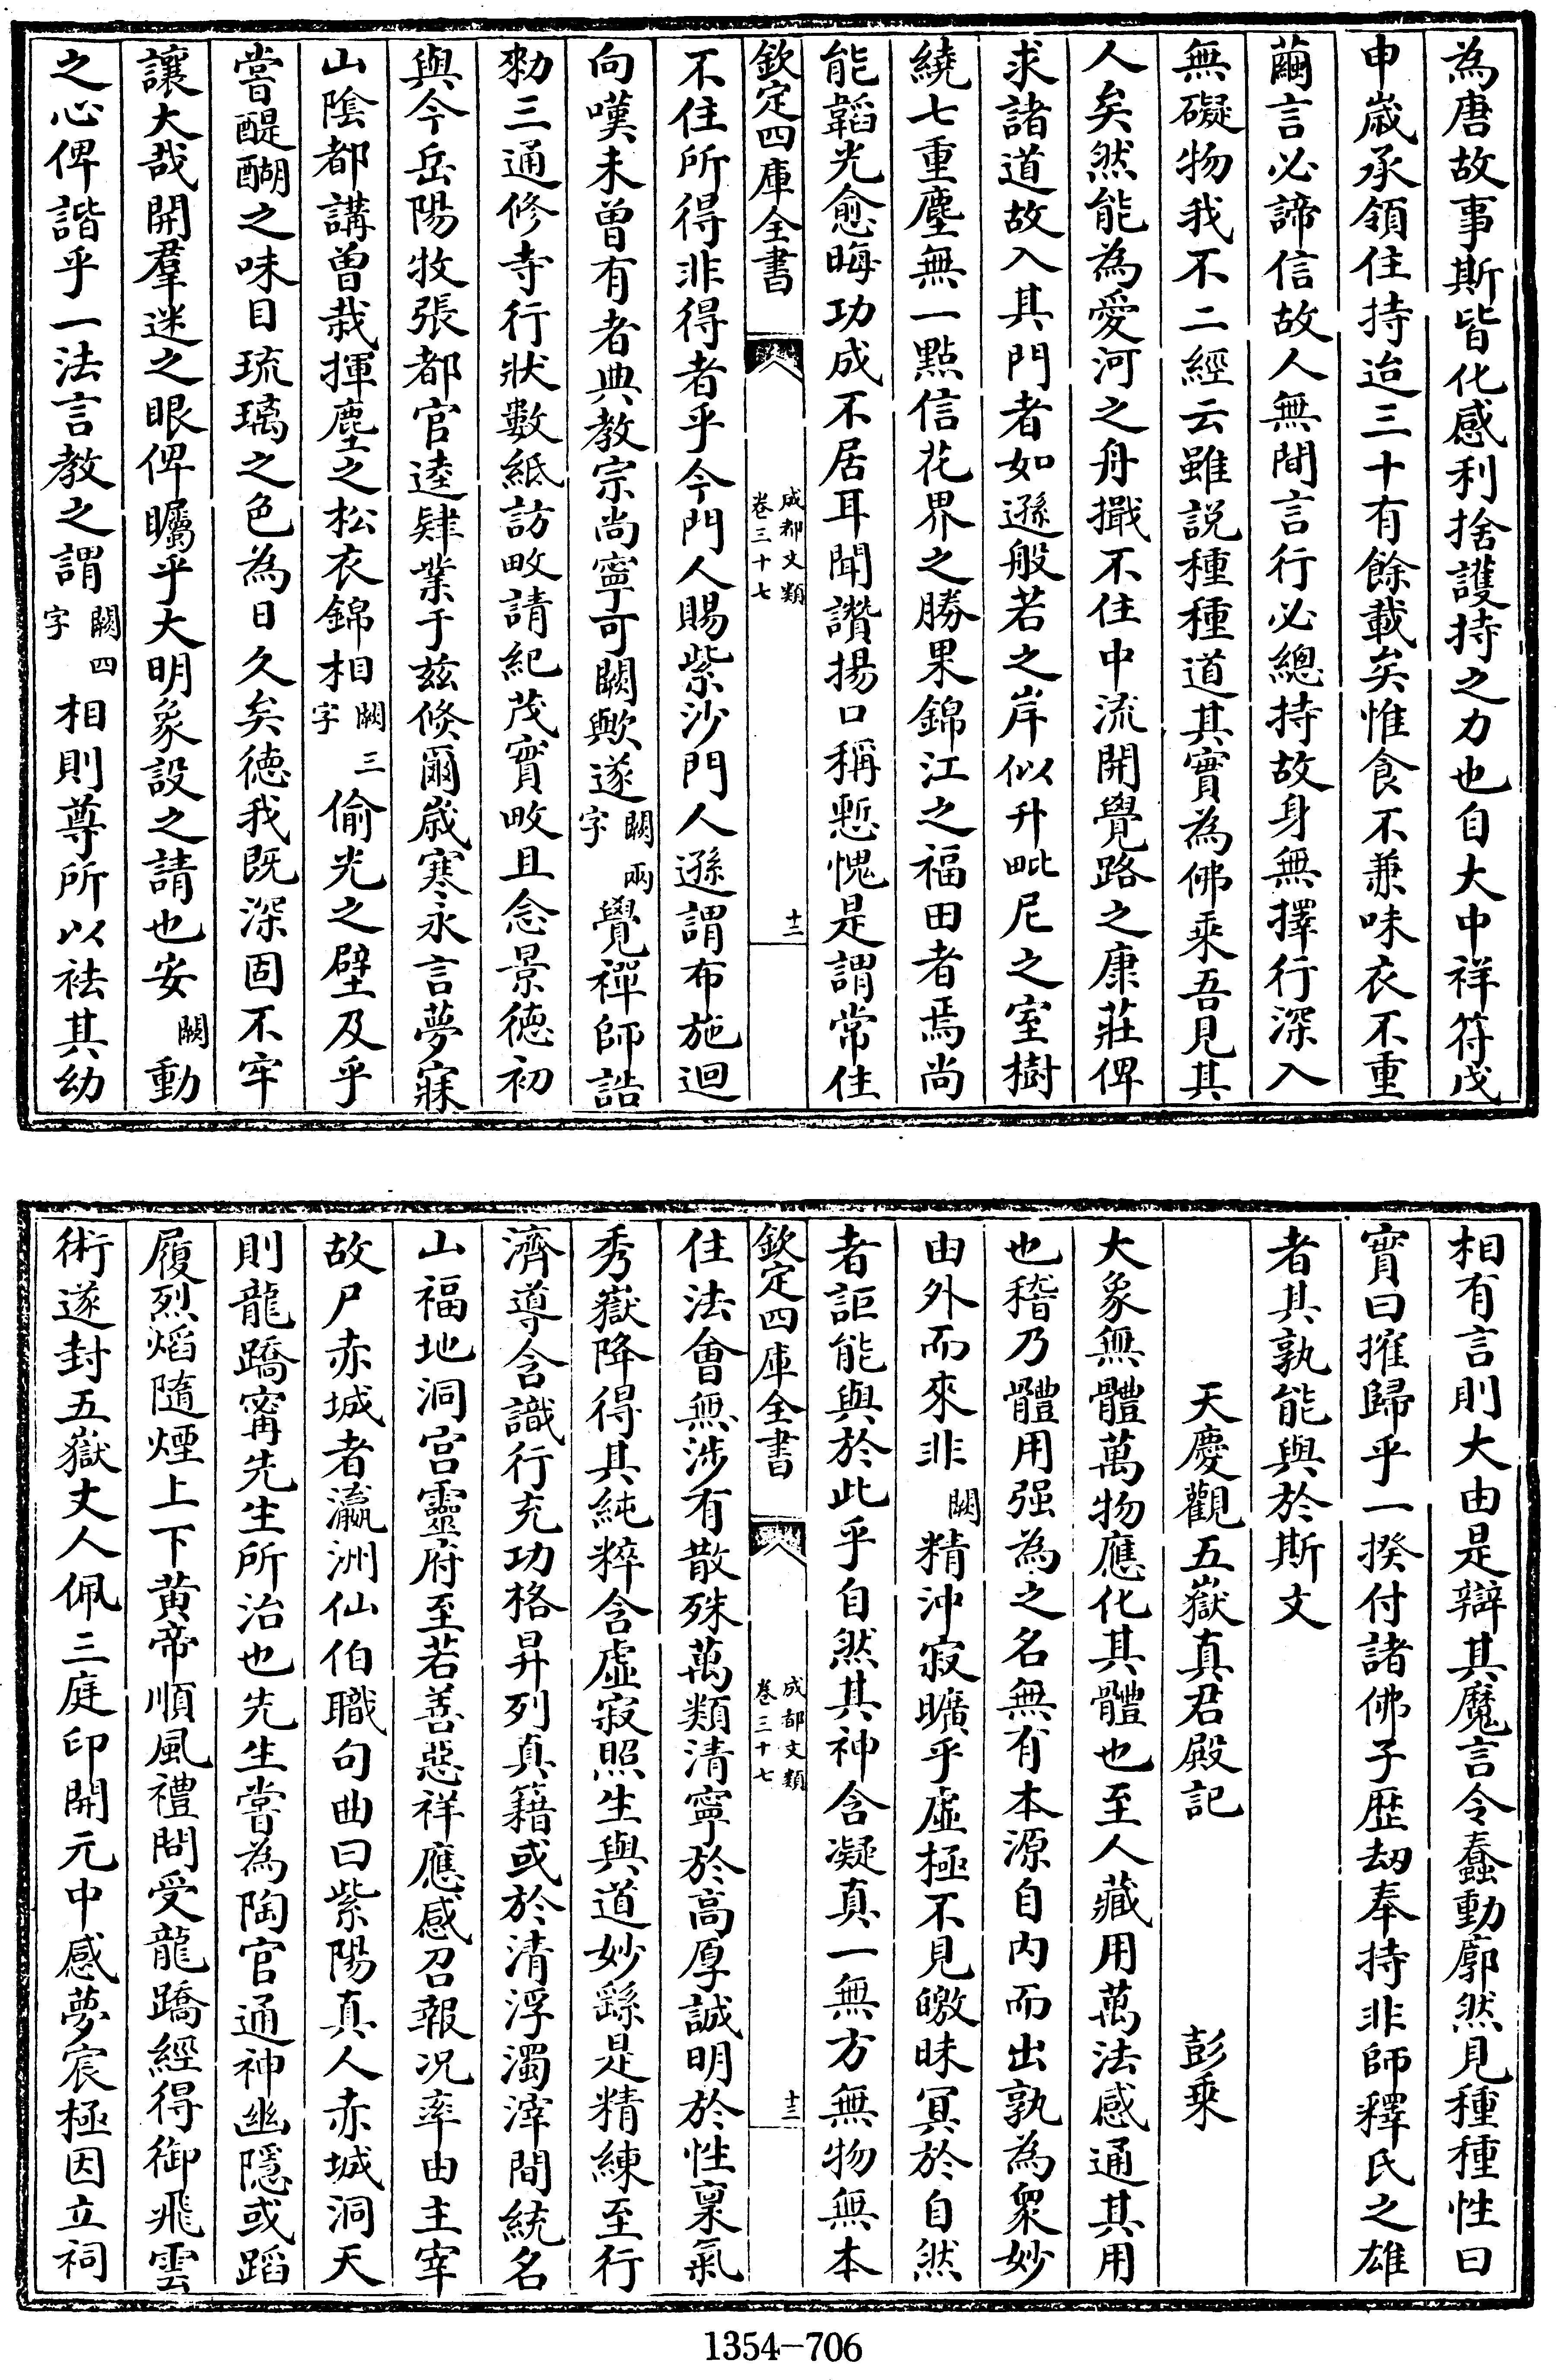 為唐故事斯皆化感利捨護持之力也自大中祥符戊
申嵗承領住持迨三十有餘載矣惟食不兼味衣不重
繭言必諦信故人無間言行必總持故身無擇行深入
無礙物我不二經云雖說種種道其實為佛乘吾見其
人矣然能為愛河之舟撖不住中流開覺路之康莊俾
求諸道故入其門者如遜般若之岸似升毗尼之室樹
繞七重塵無一點信花界之勝果錦江之福田者焉尚
能韜光愈晦功成不居耳聞讚揚口稱慙愧是謂常住
欽定四庫全書
成都文類
卷三十七
十二
不住所得非得者乎今門人賜紫沙門人遜謂布施迴
向嘆未曽有者典教宗尚寧可闕歟遂闕兩字覺禪師誥
勑三通修寺行狀數紙訪畋請紀茂實畋且念景德初
與今岳陽牧張都官逵肄業于兹倐爾嵗寒永言夢寐
山陰都講曽栽揮塵之松衣錦相闕三字偷光之壁及乎
嘗醍醐之味目琉璃之色為日久矣德我既深固不牢
讓大哉開羣迷之眼俾矚乎大明象設之請也安闕動
之心俾諧乎一法言教之謂闕四字相則尊所以袪其幼
相有言則大由是辯其魔言令蠢動廓然見種種性曰
實曰摧歸乎一揆付諸佛子歴刼奉持非師釋氏之雄
者其孰能與於斯文
天慶觀五嶽真君殿記 彭乗
大象無體萬物應化其體也至人藏用萬法感通其用
也稽乃體用强為之名無有本源自内而出孰為衆妙
由外而來非闕精沖寂曠乎虛極不見皦昧冥於自然
者詎能與於此乎自然其神含凝真一無方無物無本
欽定四庫全書
成都文類
卷三十七
十三
住法會無渉有散殊萬類清寧於高厚誠明於性稟氣
秀嶽降得其純粹含虛寂照生與道妙繇是精練至行
濟導含識行充功格昇列真籍或於清浮濁滓間統名
山福地洞宫靈府至若善惡祥應感召報况率由主宰
故尸赤城者瀛洲仙伯職句曲曰紫陽真人赤城洞天
則龍蹻甯先生所治也先生嘗為陶官通神幽隠或蹈
履烈熖隨煙上下黄帝順風禮問受龍蹻經得御飛雲
術遂封五嶽丈人佩三庭印開元中感夢宸極因立祠
1354-706